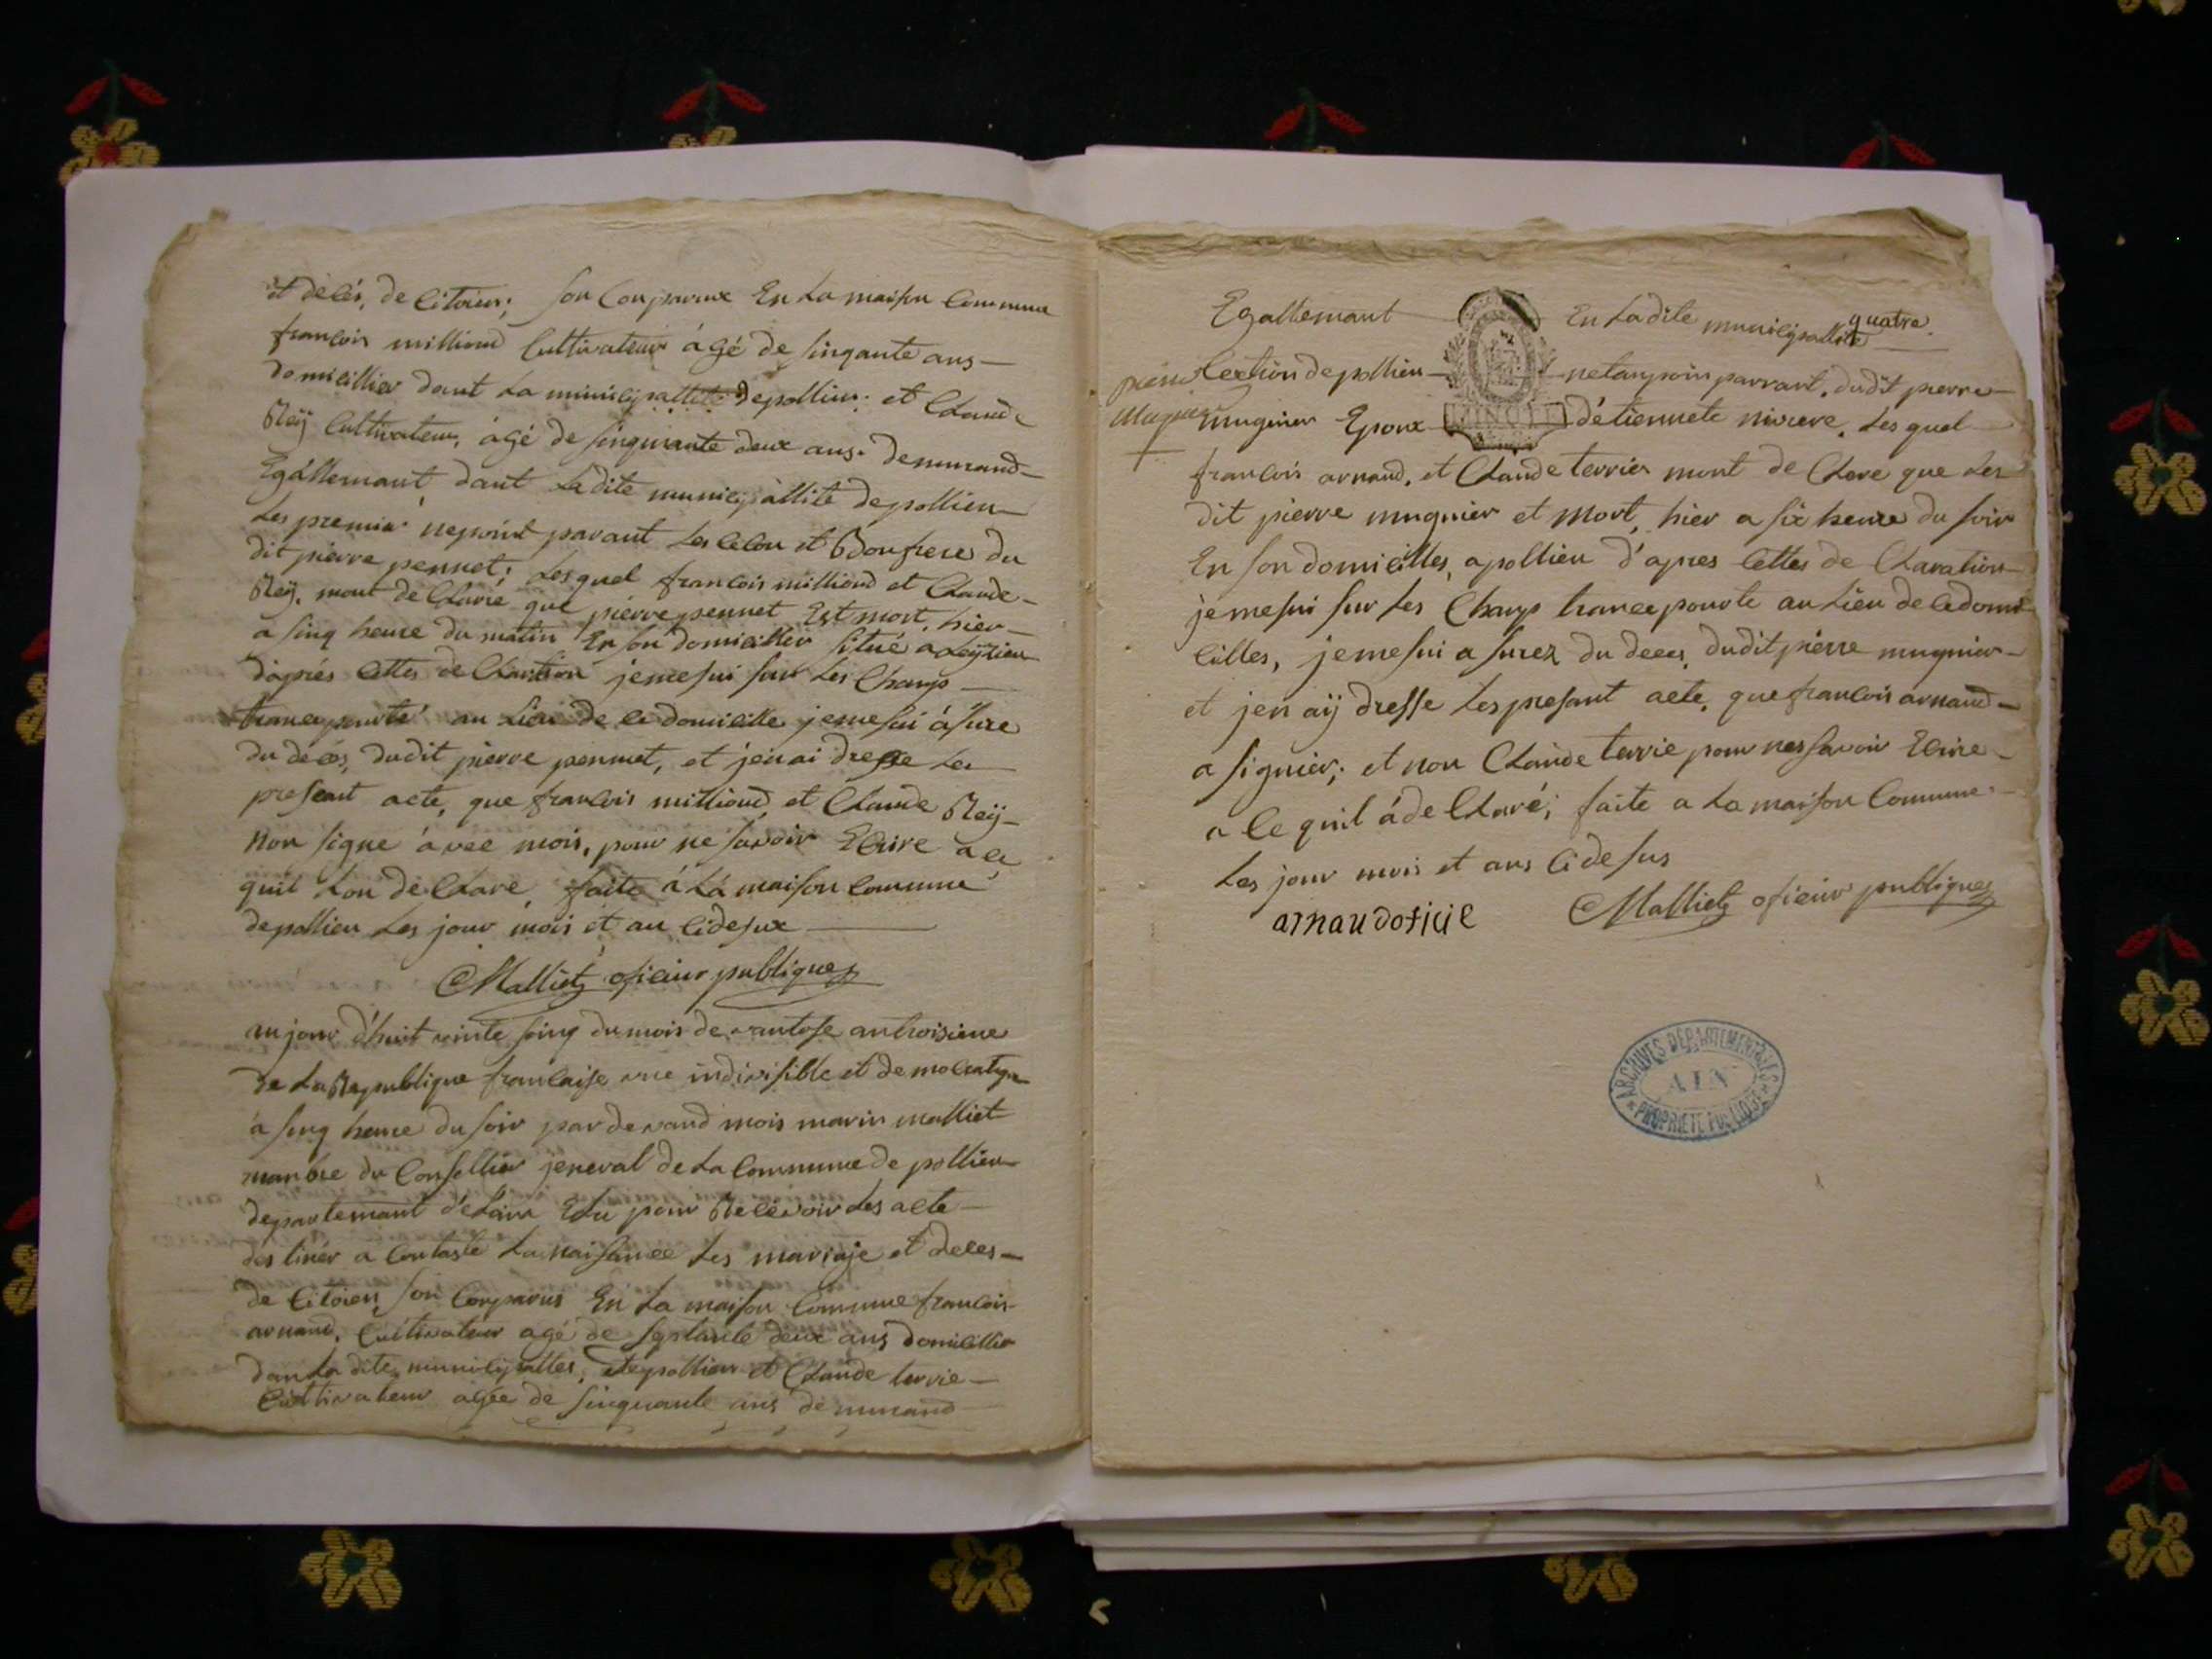 et décés, de Citoien; son Conparux En La maison Commune
francois milliond Cultivateur ágé de sinqante ans
domicillier dant La minicipallité depollieu; et Claude
Reÿ Cultivateur, ágé de sinquante deux ans. demmeurand
Egállemant, dant Ladite municipállité depollieu
Les premier nepoint parant Les celon et Bonfrere du
dit pierre pennet; Lesquel francois milliond et Claude
Reÿ, mont deClaré que pierre pennet Est mort, hier
a sinq heure du matin En son domicillier situé a Leÿzieu
d'aprés cettes deClaration jemesui sur Les Champ
trancepourté au Lieu de ce domicille jemesui ásure
du décés, dudit pierre pennet, et jenai dresse Les
present acte, que francois milliond et Claude Reÿ
Non signe ávec mois, pour ne savoir Ecrire a ce
quil Lon deClare, faite á Lá maison Commune
depollieu Les jour mois et an cidesux
Malliet oficiur publique
aujour d'huit vinte sinq du mois de vantose antroisieme
de La Republique francaise une indivisible et democratique
á sinq heure du soir pardevand mois marin malliet
manbre du Consellier jeneral de La Commune de pollieu
departemant de Lain Elu pour Recevoir Les acte
destinér a Contaste La naisance Les mariaje et deces
de Citoien son Conparus En La maison Commune francois
arnaud, Cultivateur agé de septante deux ans domicillier
dan La dite municipalles, depollieu et Claude terrie
Cultivateur agée de sinquante ans demmurand
quatre
Egallemant En Ladite municipallite
pierre
Mugnier
section depollieu netanpoin parrant, dudit pierre
mugnier Epoux détiennete nivere, Les quel
francois arnaud, et Claude terrier mont deClare que Les
dit pierre mugnier et mort, hier a six heure du soir
En son domicilles, apollieu d'apres cettes deClaration
jemesui sur Les Champ trancepourte au Lieu de cedomi
cilles, jemesui a surez du deces, dudit piérre mugnier
et jen aÿ dresse Les presant acte, que francois arnaud
a signier; et non Claude terrie pour nes savoir Ecire
a Ce quil á deClaré; faite a La maison Commune
Les jour mois et ans Cidesus
arnaud oficie Malliet oficiur publique
ARCHIVES DÉPARTEMENTALES
AIN
PROPRIÉTÉ PUBLIQUE